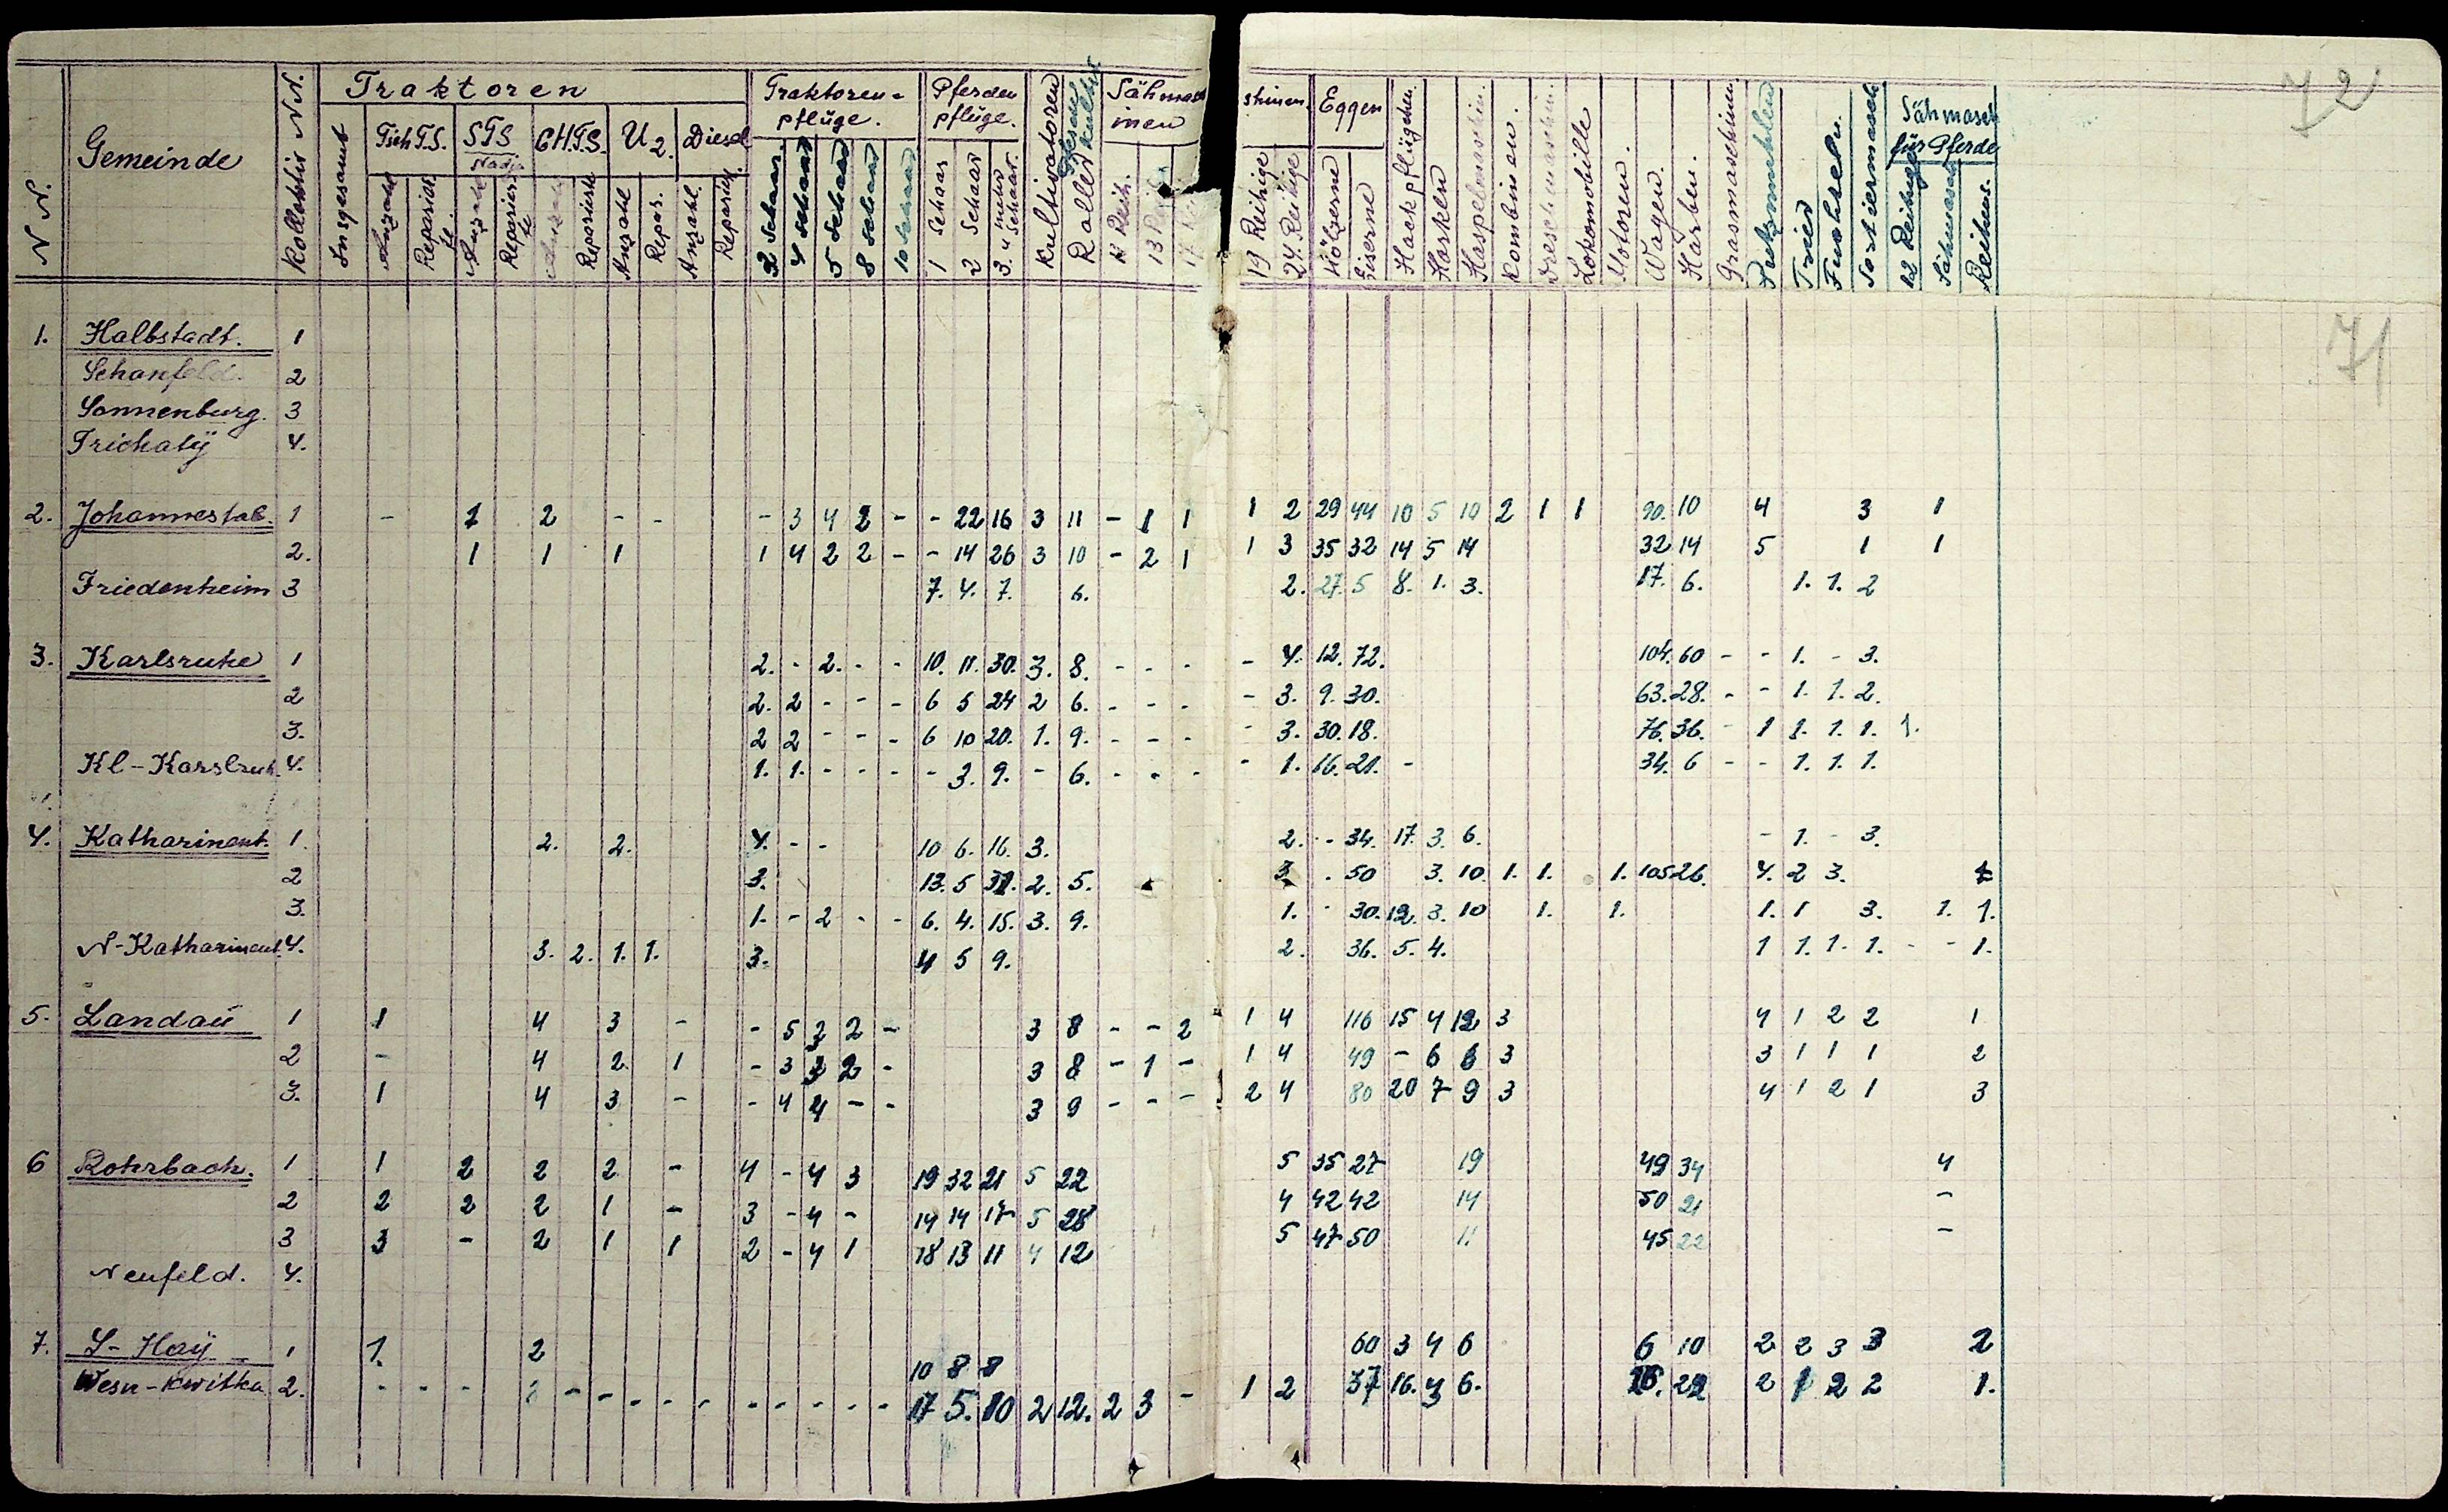 72
71
N N. Gemeinde Kollektiv N N. Traktoren Traktoren- pflüge. Pferden pflüge. Kultivatoren Sähmasch inen shinen. Eggen Hackpflügchen. Harken Haspelmaschin. Kombinen. Dreschmaschin. Lokomobille Motoren. Wagen. Harben. Grasmaschinen Putzmühlen Trier Fuchteln. Sortiermasch Sähmasch für Pferde
Insgesamt Tsch T.S. STS Nadj CH.T.S. U 2. Diesel
Anzahl Reparier te. Anzahl Reparier te Reparierte Anzahl Repar. Anzahl. Reparier. 4 Schaar 5 Schaar 8 Schaar 10 Schaar 1 Schaar 2 Schaar 3. u mehr Schaar. 13 Reih. 19 Reihige 24. Reihige Hölzerne Eiserne 12 Reihige Sähmasch Reihens.
1. Halbstadt. 1
Schönfeld. 2
Sonnenburg. 3
Trichatÿ 4.
2. Johannestal. 1 - 1 2 - - - 3 4 2 - - 22 16 3 11 - 1 1 1 2 29 44 10 5 10 2 1 1 10 4 3 1
2. 1 1 1 1 4 2 2 - - 14 26 3 10 - 2 1 1 3 35 32 14 5 14 32 14 5 1 1
Friedenheim 3 7. 4. 7. 6. 2. 27. 5 8. 1. 3. 17. 6. 1. 1. 2
3. Karlsruhe 1 2. - 2. - - 10. 11. 30. 3. 8. - - - - 4. 12. 72. 104. 60 - - 1. - 3.
2 2. 2 - - - 6 5 24 2 6. - - - - 3. 9. 30. 63. 28. - - 1. 1. 2.
3. 2 2 - - - 6 10 20. 1. 9. - - - - 3. 30. 18. 76. 36. - 1 1. 1. 1. 1.
Kl-Karslruh. 4. 1. 1. - - - - 3. 9. - 6. - - - - 1. 16. 21. - 34. 6 - - 1. 1. 1.
4. Katharinent. 1. 2. 2. 4. - - 10 6. 16. 3. 2. - 34. 17. 3. 6. - 1. - 3.
2 3. 13. 5 2. 5. 3. . 50 3. 10. 1. 1. 1. 105 26. 4. 2 3.
3. 1. - 2 - - 6. 4. 15. 3. 9. 1. - 30. 12. 3. 10 1. 1. 1. 1 3. 1. 1.
N-Katharinent. 4. 3. 2. 1. 1. 3. 4 5 9. 2. 36. 5. 4. 1 1. 1. 1. - - 1.
5. Landau 1 1 4 3 - - 5 2 - 3 8 - - 2 1 4 116 15 4 12 3 4 1 2 2 1
2 - 4 2 1 - 3 2 - 3 8 - 1 - 1 4 49 - 6 6 3 3 1 1 1 2
3. 1 4 3 - - 4 4 - - 3 9 - - - 2 4 80 20 7 9 3 4 1 2 1 3
6 Rohrbach. 1 1 2 2 2 - 4 - 4 3 19 32 21 5 22 5 35 27 19 49 34 4
2 2 2 2 1 - 3 - 4 - 14 14 17 5 28 4 42 42 14 50 21 -
3 3 - 2 1 1 2 - 4 1 18 13 11 4 12 5 47 50 11 45 22 -
Neufeld. 4.
7. S-Haÿ 1 1. 2 10 8 8 60 3 4 6 6 10 2 2 3 3 2
Wesn-Kwitka 2. - - - - - - - - - - - - - 17 5. 10 2 12. 2 3 - 1 2 37 16. 6. 2 2 2 1.